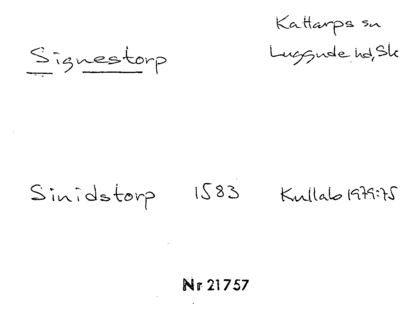 Signestorp
Kattarps sn
Luggude hd, Sk
Sinidstorp 1583 Kullab 1979:75
Nr 21757